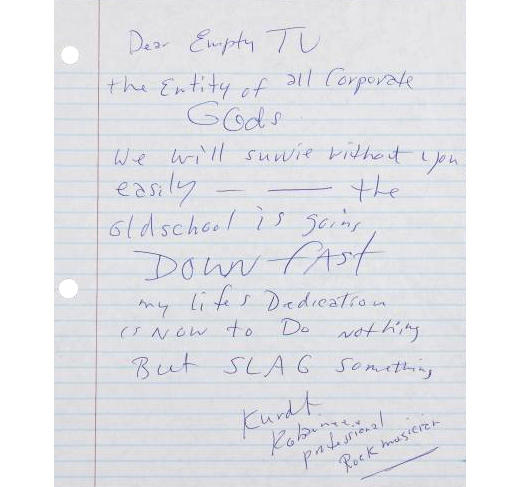 Dear Empty TV
the Entity of all Corporate
GOds
We will suwie without you
easily — — the
oldschool is going
DOWN fast
my life's Dedication
is NOW to Do nothing
But SLAG Something
Kurdt
professional
Rock musician